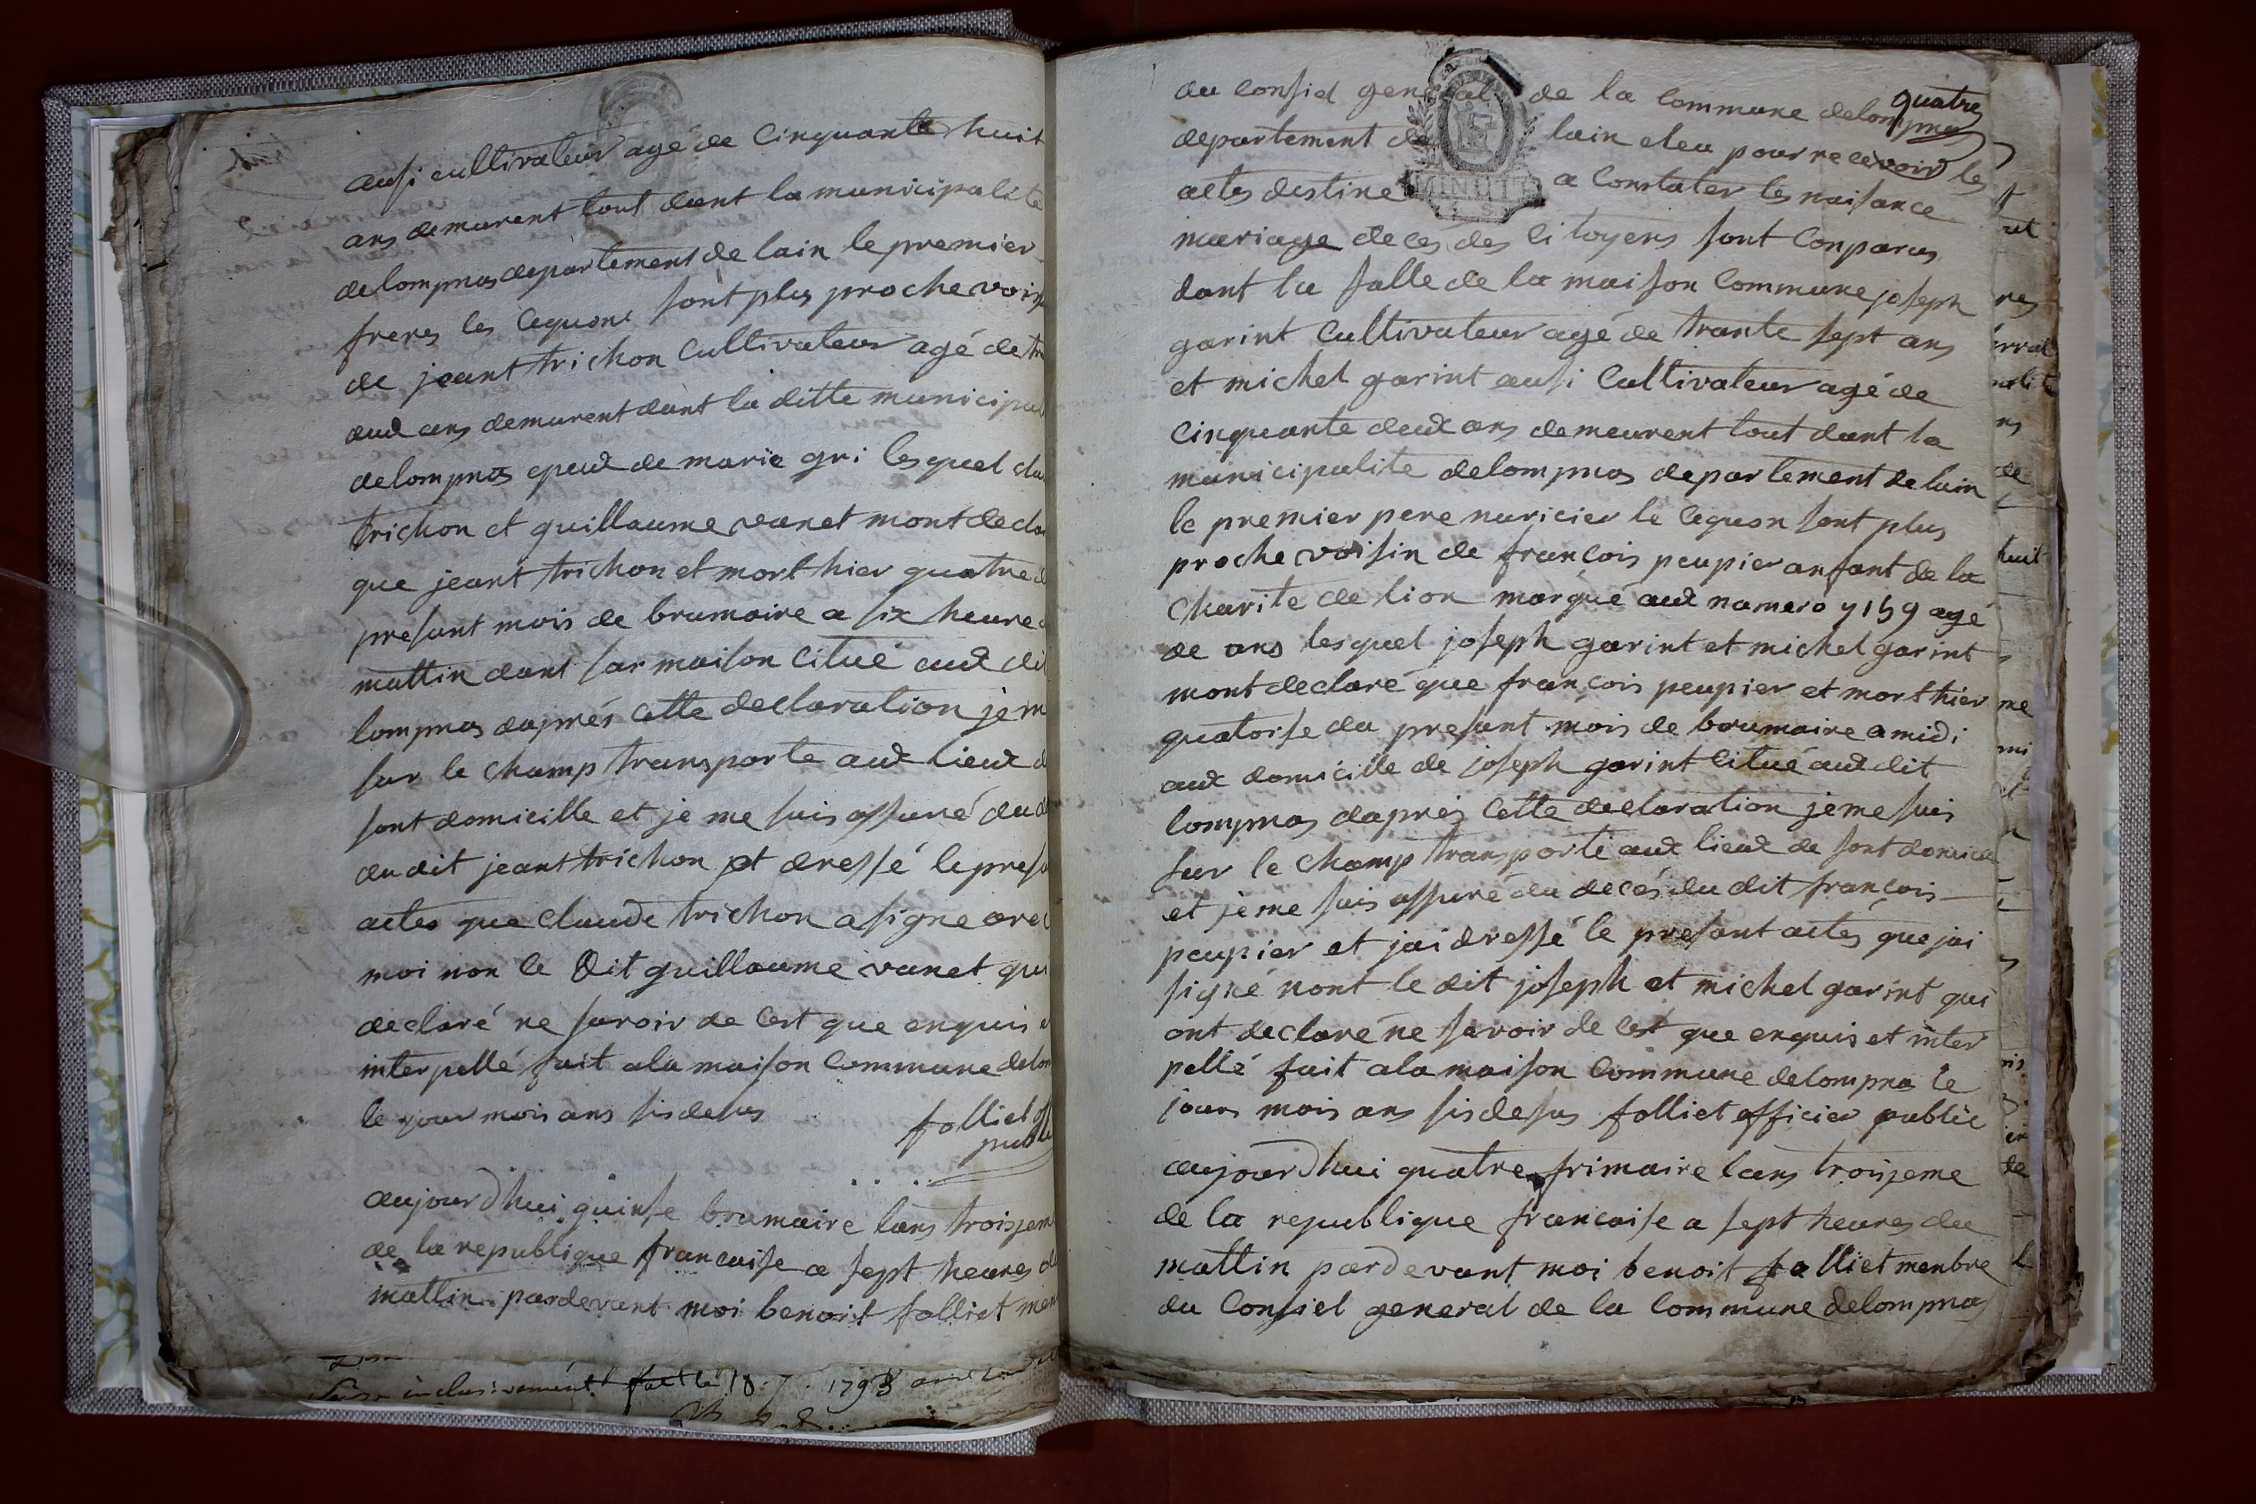 ausi cultivateur agé de cinquante huit
ans demurent tout dant la municipalite
delompnas departement de lain le premier
freres les cequont sont plus proche voisin
de jeant trichon cultivateur agé de
deux ans demurent dant la ditte municipal
delompnas epeux de marie gri lesquel
trichon et guillaume vanet mont declar
que jeant trichon et mort hier quatre
presant mois de brumaire a six heure
mattin dant sar maison citué aux dit
lompnas daprés cette declaration je m
sur le champ transporte aux lieux d
sont domicille et je me suis assuré du d
du dit jeant trichon et dressé le presa
actes que claude trichon a signe avec
moi non le dit guillaume vanet qui
declaré ne savoir de cest que enquis e
interpellé fait ala maison commune delom
le jour mois ans sisdesus
folliet off
public
aujourdhui quinse brumaire lans troisjeme
de la republique francaise a sept heures du
mattin pardevant moi benoit folliet men
inclusivement fait le 18 7 1793
quatre
du consiel general de la commune delompnas
departement de lain eleu pour recevoir les
actes destine a constater les naisance
mariage deces des citoyens sont conparus
dant la salle de la maison commune joseph
garint cultivateur agé de trante sept ans
et michel garint ausi cultivateur agé de
cinquante deux ans demeurent tout dant la
municipalite delompnas departement de lain
le premier pere nuricier le cequon sont plus
proche voisin de francois peupier anfant de la
charite de lion marqué aux namero 7159 agé
de ans lesquel joseph garint et michel garint
mont declaré que francois peupier et mort hier
quatorse du presant mois de brumaire a midi
aux domicille de joseph garint citué aux dit
lompnas daprés cette declaration je me suis
sur le champ transporté aux lieux de sont domicil
et je me suis assuré du decés du dit francois
peupier et jai dressé le presant actes que jai
signé nont le dit joseph et michel garint qui
ont declaré ne savoir de cest que enquis et inter
pellé fait ala maison commune delompna le
jours mois ans sisdesus folliet officier public
aujourdhui quatre frimaire lans troisjeme
de la republique francaise a sept heures du
mattin pardevant moi benoit folliet menbre
du consiel general de la commune delompnas